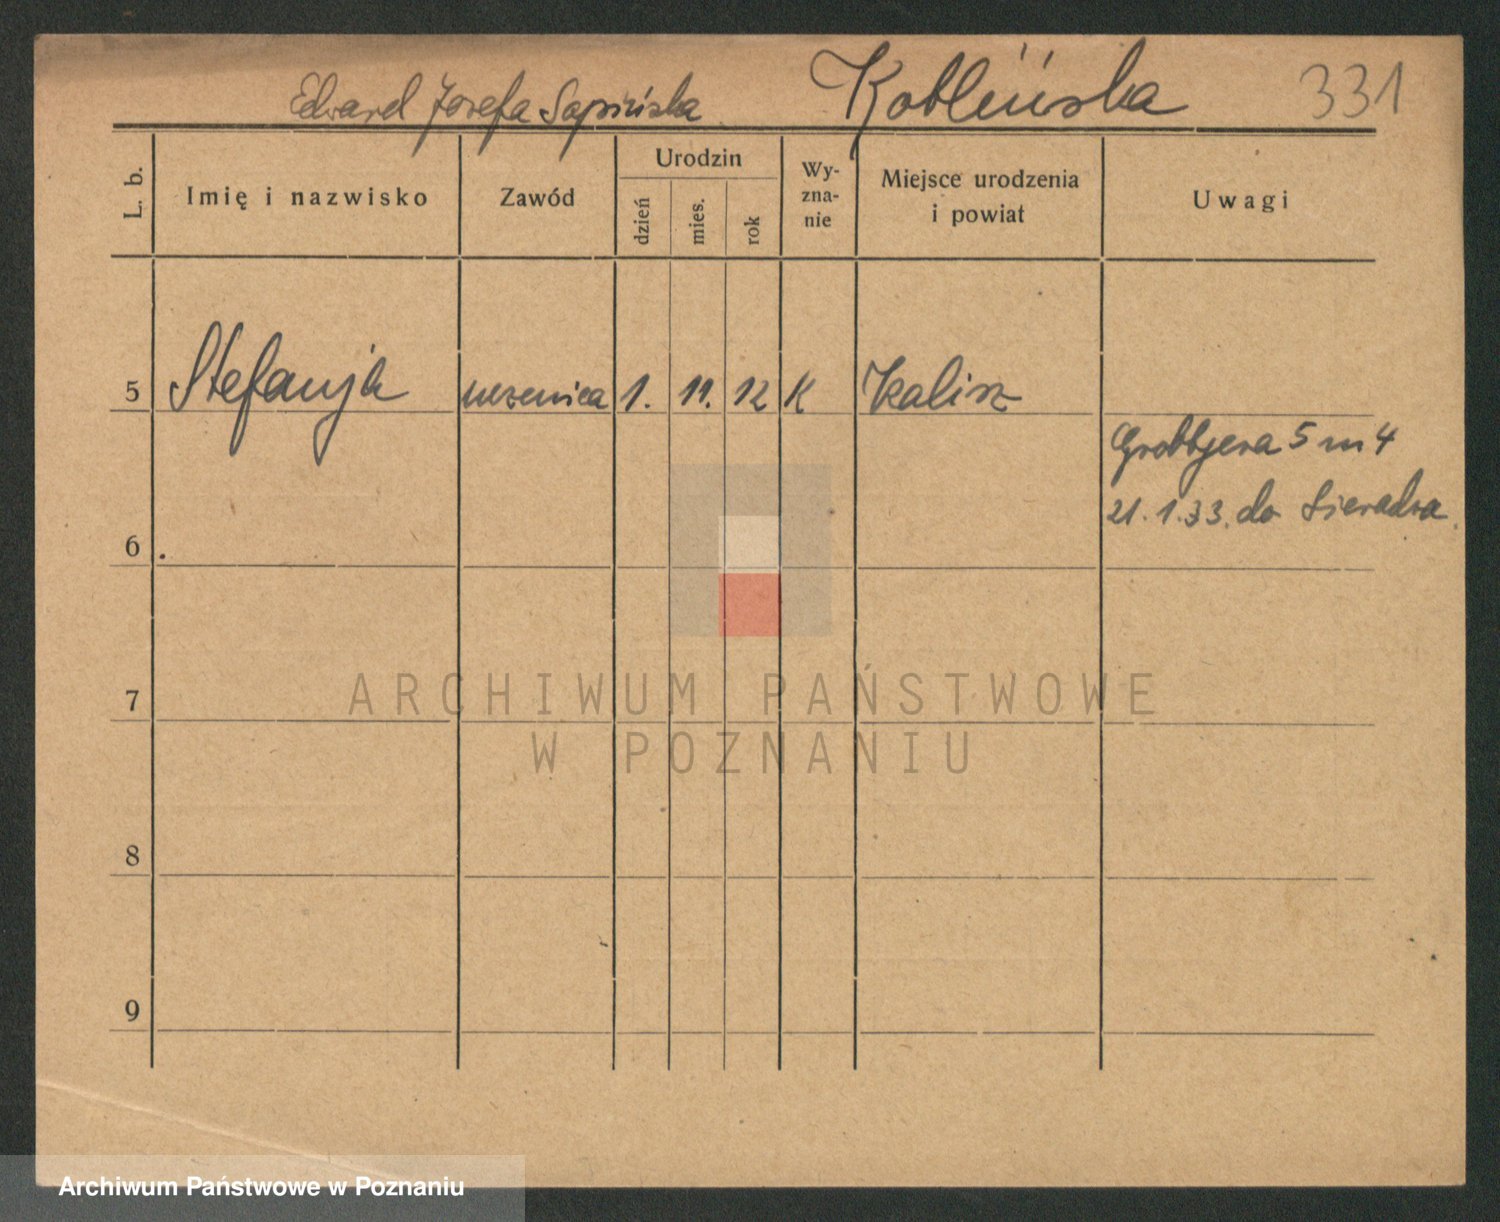 Edward Józefa Sapińska Koblińska 331
L. b. Imię i nazwisko Zawód Urodzin dzień mies. rok Wyznanie Miejsce urodzenia i powiat Uwagi
5 Stefanja uczenica 1. 11. 12 K Kalisz
5 m 4
21.1.33. do Sieradza.
6
7
8
9
ARCHIWUM PAŃSTWOWE
W POZNANIU
Archiwum Państwowe w Poznaniu